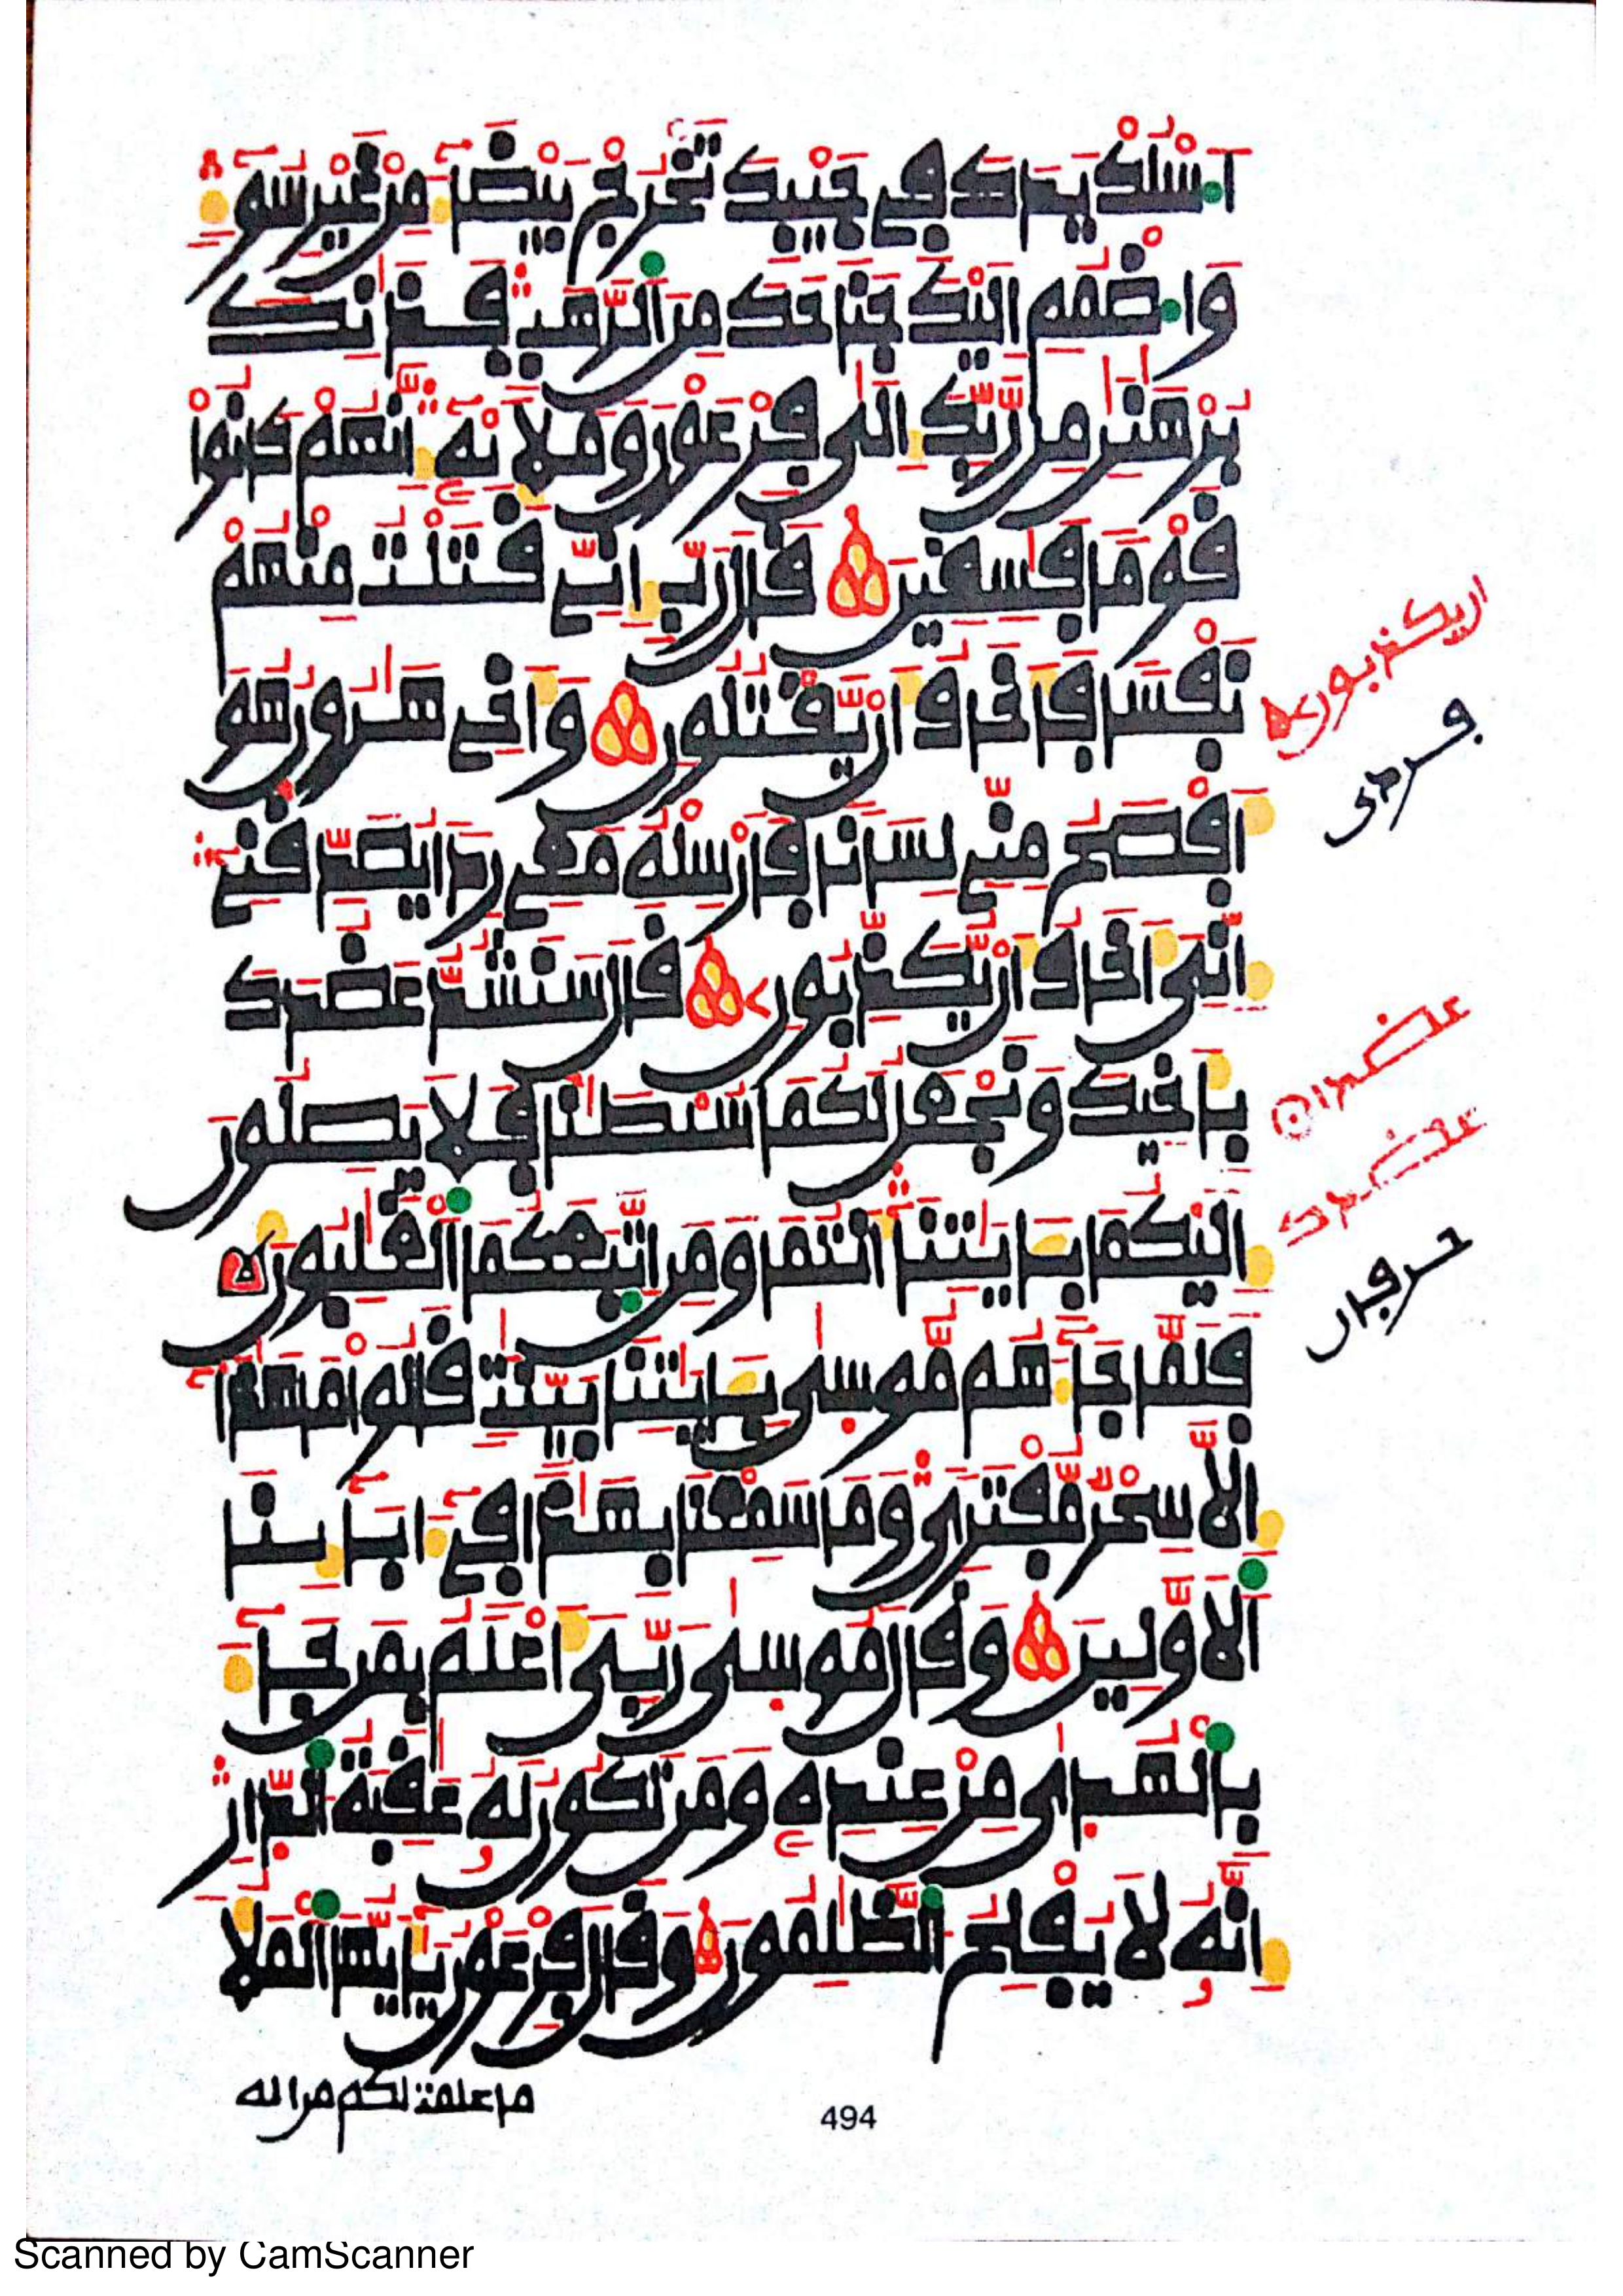 اَسْلُكْ يَدَكَ فِي جَيْبِكَ تَخْرُجْ بَيْضَآءَ مِنْ غَيْرِ سُوٓءٍ
وَاضْمُمِ اِلَيْكَ جَنَاحَكَ مِنَ اَلرَّهَبِ فَذَٰنِكَ
بُرْهَٰنَٰنِ مِن رَّبِّكَ إِلَىٰ فِرْعَوْنَ وَمَلَإِيْهِۦٓ إِنَّهُمْ كَانُواْ
قَوْماً فَٰسِقِينَ قَالَ رَبِّ إِنِّي قَتَلْتُ مِنْهُمْ
نَفْساً فَأَخَافُ أَنْ يَّقْتُلُونِ وَأَخِي هَٰرُونُ هُوَ
أَفْصَحُ مِنِّي لِسَاناً فَأَرْسِلْهُ مَعِي رِداً يُصَدِّقْنِي
إِنِّيَ أَخَافُ أَنْ يُّكَذِّبُونِ قَالَ سَنَشُدُّ عَضُدَكَ
بِأَخِيكَ وَنَجْعَلُ لَكُمَا سُلْطَٰناً فَلَا يَصِلُونَ
إِلَيْكُمَا بِـَٔايَٰتِنَا أَنتُمَا وَمَنِ اِتَّبَعَكُمَا اَلْغَٰلِبُونَ
فَلَمَّا جَآءَهُم مُّوسَىٰ بِـَٔايَٰتِنَا بَيِّنَٰتٍ قَالُواْ مَا هَٰذَآ
إِلَّا سِحْرٌ مُّفْتَرىً وَمَا سَمِعْنَا بِهَٰذَا فِيٓ ءَابَآئِنَا
اَلْأَوَّلِينَ وَقَالَ مُوسَىٰ رَبِّيَ أَعْلَمُ بِمَن جَآءَ
بِالْهُدَىٰ مِنْ عِندِهِۦ وَمَن تَكُونُ لَهُۥ عَٰقِبَةُ اُلدّارِ
إِنَّهُۥ لَا يُفْلِحُ اُلظَّٰلِمُونَ وَقَالَ فِرْعَوْنُ يَٰٓأَيُّهَا اَلْمَلَأُ
ما علمت لكم من اله
494
ان يكذبون
عضدان
عضدك
Scanned by CamScanner